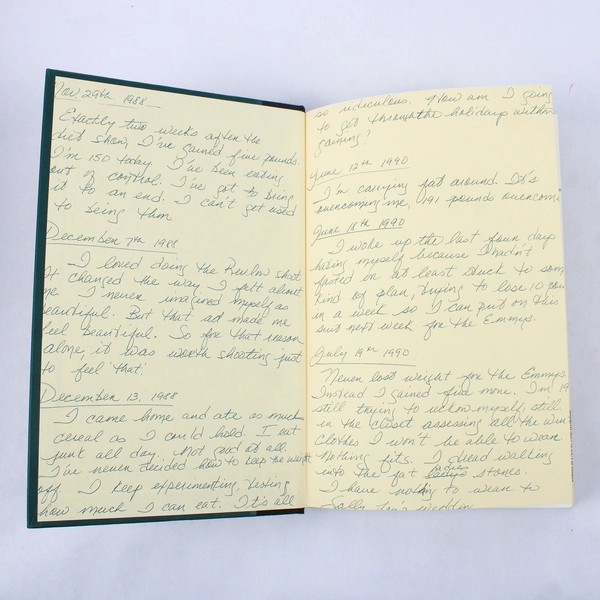 Nov 29th 1988
Exactly two weeks after the
diet show, I've gained five pounds.
I'm 150 today. I've been eating
out of control. I've got to bring
it to an end. I can't get used
to being thin
December 7th 1988
I loved doing the Revlon shoot
It changed the way I felt about
me. I never imagined myself as
beautiful. But that ad made me
feel beautiful. So for that reason
alone, it was worth shooting just
to feel that.
December 13, 1988
I came home and ate as much
cereal as I could hold. I eat
junk all day. Not good at all.
I've never decided how to keep the weight
off I keep experimenting, testing
how much I can eat. It's all
so ridiculous. How am I going
to get through the holidays without
gaining?
June 12th 1990
I'm carrying fat around. It's
overcoming me, 191 pounds overcoming
June 18th 1990
I woke up the last four days
hating myself because I hadn't
fasted or at least stuck to some
kind of plan, trying to lose 10 pounds
in a week so I can put on this
suit next week for the Emmys.
July 19th 1990
Never lost weight for the Emmys.
Instead I gained five more. I'm 19
still trying to reckon myself, still
in the closet assessing all the win
clothes I won't be able to wear
Nothing fits. I dread walking
into the fat ladies stores.
I have nothing to wear to
Sally Lou's wedding